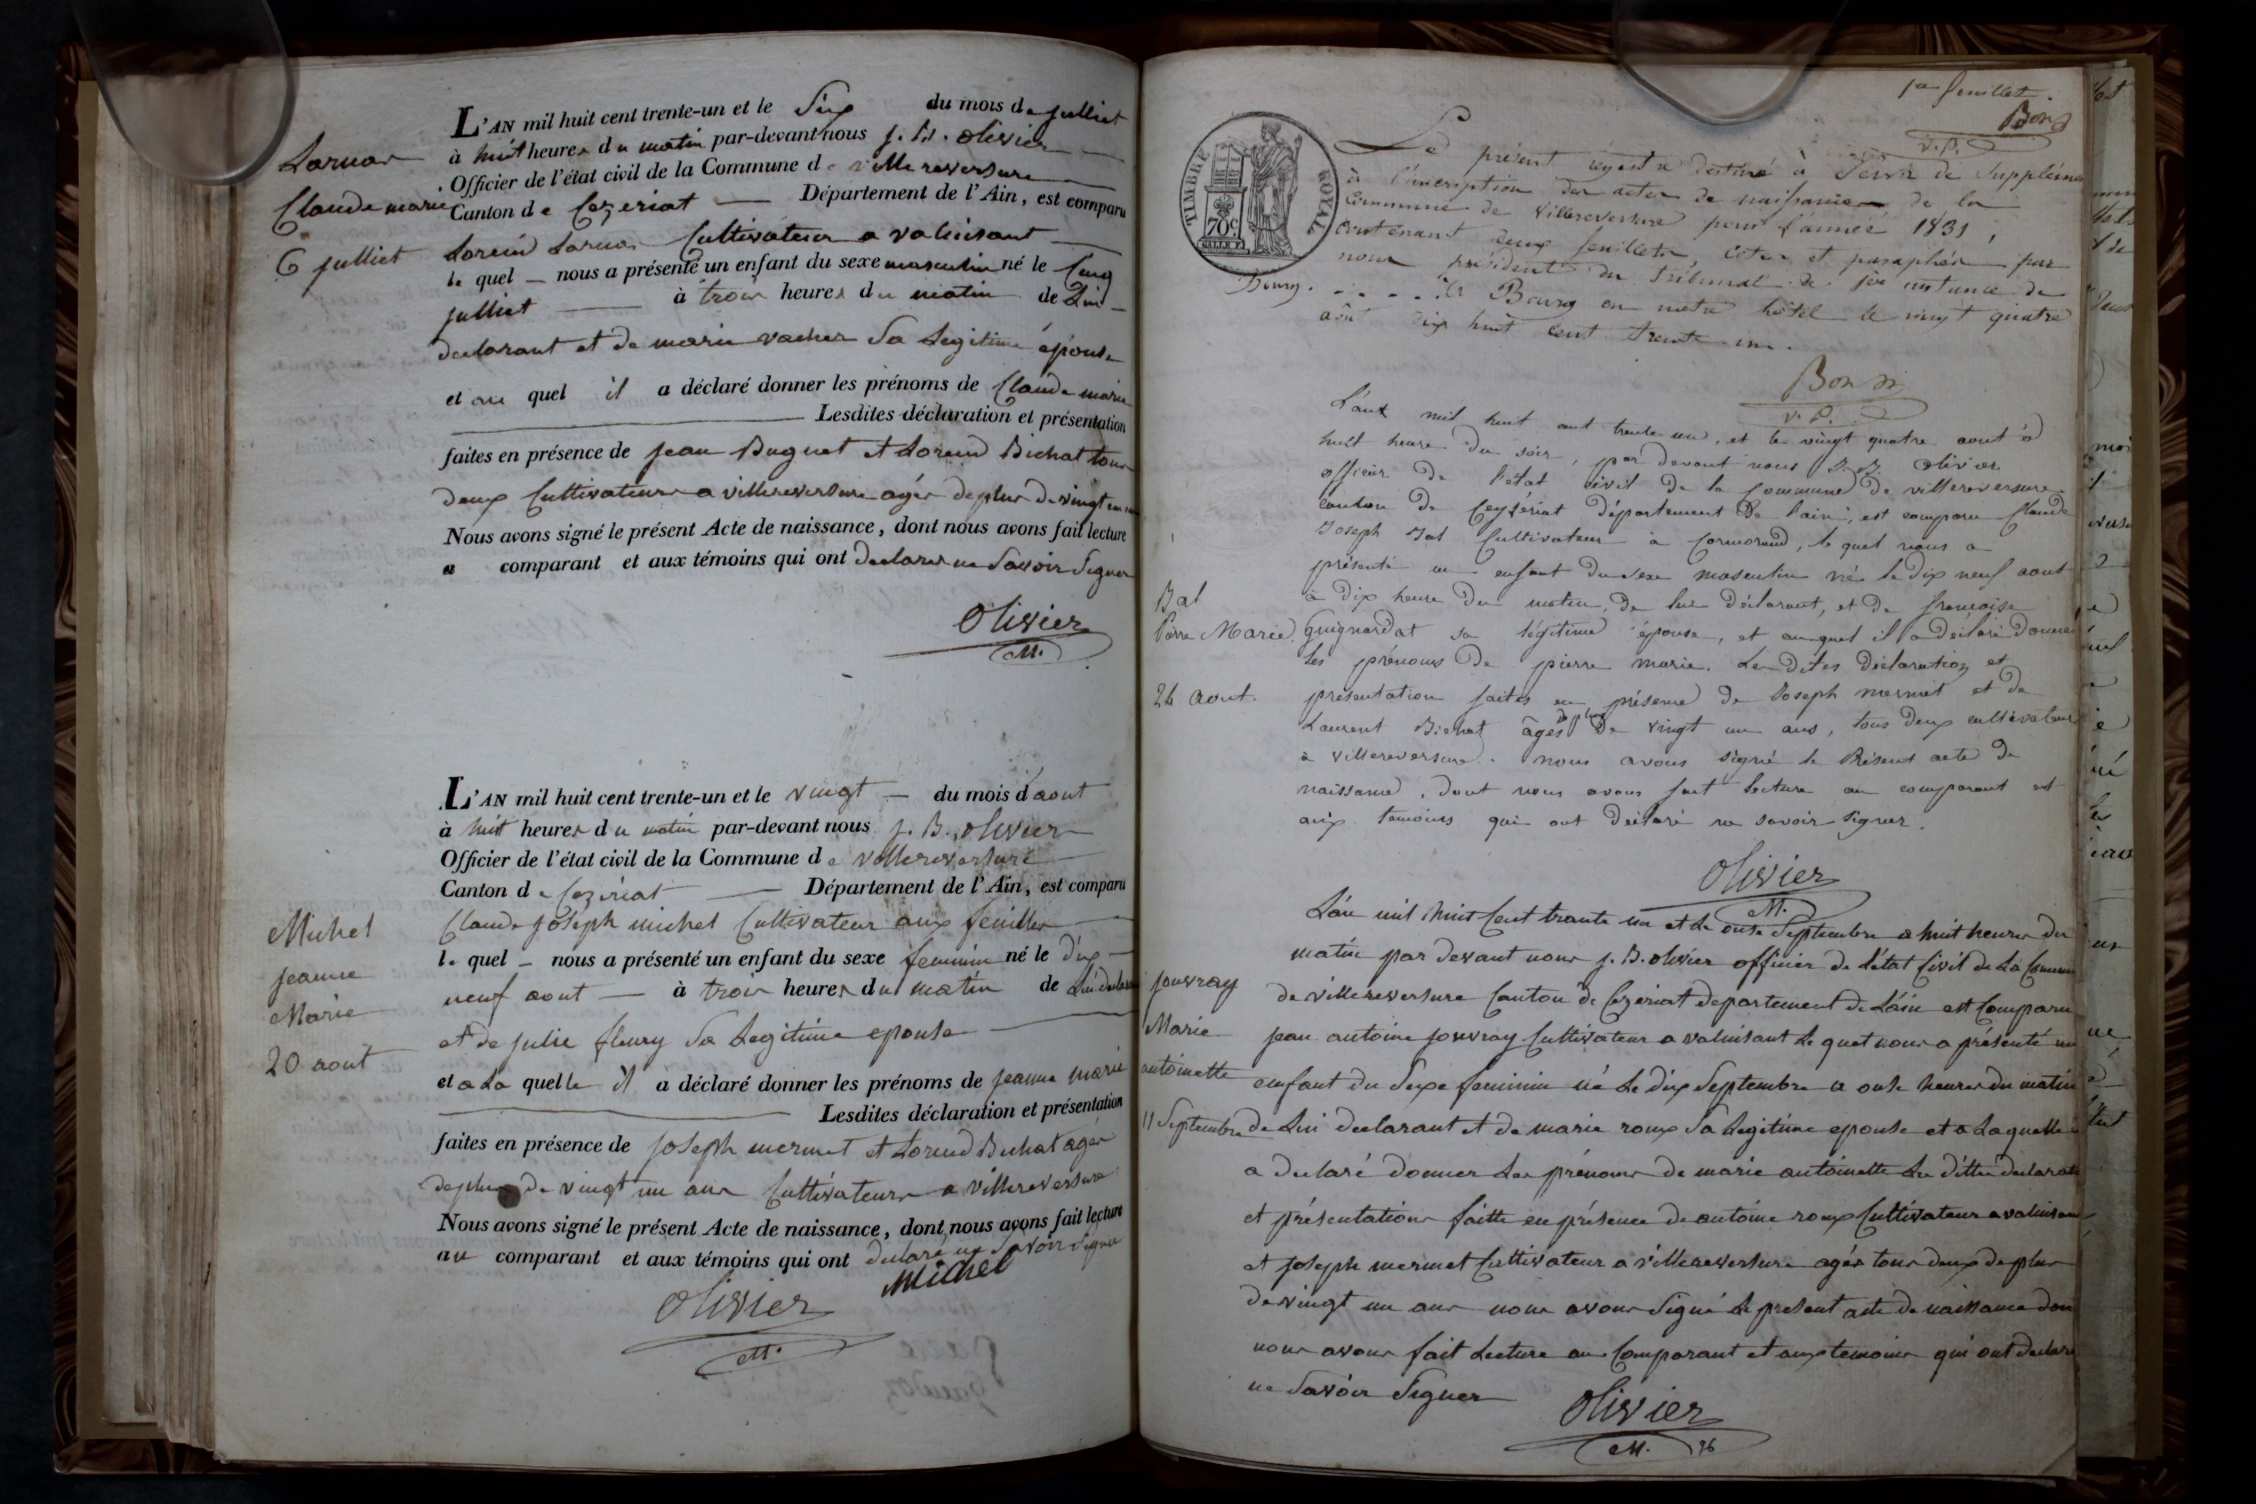 Larnar
Claude marie
6 julliet
L'AN mil huit cent trente-un et le Six du mois de julliet
à huit heures du matin par-devant nous j. B. olivier
Officier de l'état civil de la Commune de villereversure
Canton de Cezeriat Département de l'Ain, est comparu
Loreint Cultivateur a valuisant
le quel nous a présenté un enfant du sexe masculin né le Cinq
julliet à trois heures du matin de Lui
declarant et de marie vacher Sa Legitime épouse
et au quel il a déclaré donner les prénoms de Claude marie
Lesdites déclaration et présentation
faites en présence de jean Buguet et Bichat tous
deux Cultivateurs a villereversure agés de plus de vingt
Nous avons signé le présent Acte de naissance, dont nous avons fait lecture
au comparant et aux témoins qui ont declarer ne Savoir Signer
Olivier
M.
Michel
jeanne
Marie
20 aout
L'AN mil huit cent trente-un et le vingt du mois d'aout
à huit heures du matin par-devant nous j. B. olivier
Officier de l'état civil de la Commune de villereversure
Canton de Cezeriat Département de l'Ain, est comparu
Claude joseph michel Cultivateur aux feuilles
le quel nous a présenté un enfant du sexe feminin né le dix
neuf aout à trois heures du matin de Lui
et de julie fleury Sa Legitime epouse
et a La quelle il a déclaré donner les prénoms de jeanne marie
Lesdites déclaration et présentation
faites en présence de joseph mermet et Bichat agés
de plus de vingt un ans Cultivateurs a villereversure
Nous avons signé le présent Acte de naissance, dont nous avons fait lecture
au comparant et aux témoins qui ont declaré ne Savoir Signer
michel
Olivier
M.
1er feuillet.
Bon
v. P.
TIMBRE ROYAL
70c
Bourg.
Le présent régistre destiné à Servir de Supplément
à l'inscription des actes de naissance de la
Commune de Villereversure pour l'année 1831,
contenant deux feuillets, cotés et paraphés par
nous président du tribunal de 1ere instance de
Bourg en notre hôtel le vingt quatre
août dix huit cent trente un.
Bon
v. P.
Bal
Pierre Marie
24 aout.
L'an mil huit cent trente un, et le vingt quatre aout à
huit heure du soir, par devant nous J. B. Olivier
officier de l'état civil de la commune de villereversure
canton de Ceyzériat département de l'ain, est comparu Claude
Joseph Bal Cultivateur à Cormorand, le quel nous a
présenté un enfant du sexe masculin né le dix neuf aout
à dix heure du matin, de lui déclarant, et de françoise
Guignardat sa légitime épouse, et auquel il a déclaré donner
les prénoms de pierre marie. Les dites déclaration et
présentation faites en présence de Joseph mermet et de
Laurent Bichat âgés de plus de vingt un ans, tous deux cultivateurs
à villereversure. nous avons signé le Présent acte de
naissance, dont nous avons fait lecture au comparant et
aux temoins qui ont declaré ne savoir signer.
Olivier
M.
jouvray
Marie
antoinette
11 Septembre
L'an mil huit Cent trante un et Le onse Septembre a huit heures du
matin par devant nous j. B. olivier officier de L'état Civil de La Commune
de villereversure Canton de Cezeriat departement de L'ain est Comparu
jean antoine jouvray Cultivateur a valuisant Le quel nous a présenté un
enfant du Sexe feminin né Le dix Septembre a onse heures du matin
de Lui declarant et de marie roux Sa Legitime epouse et a Laquelle il
a declaré donner Les prénoms de marie antoinette Les dittes
et présentations faitte en présence de antoine roux Cultivateur a valuisant
et joseph mermet Cultivateur a villereversure agés tous deux de plus
de vingt un ans nous avons Signé Le present acte de naissance dont
nous avons fait Lecture au Comparant et aux temoins qui ont declaré
ne Savoir Signer
Olivier
M.